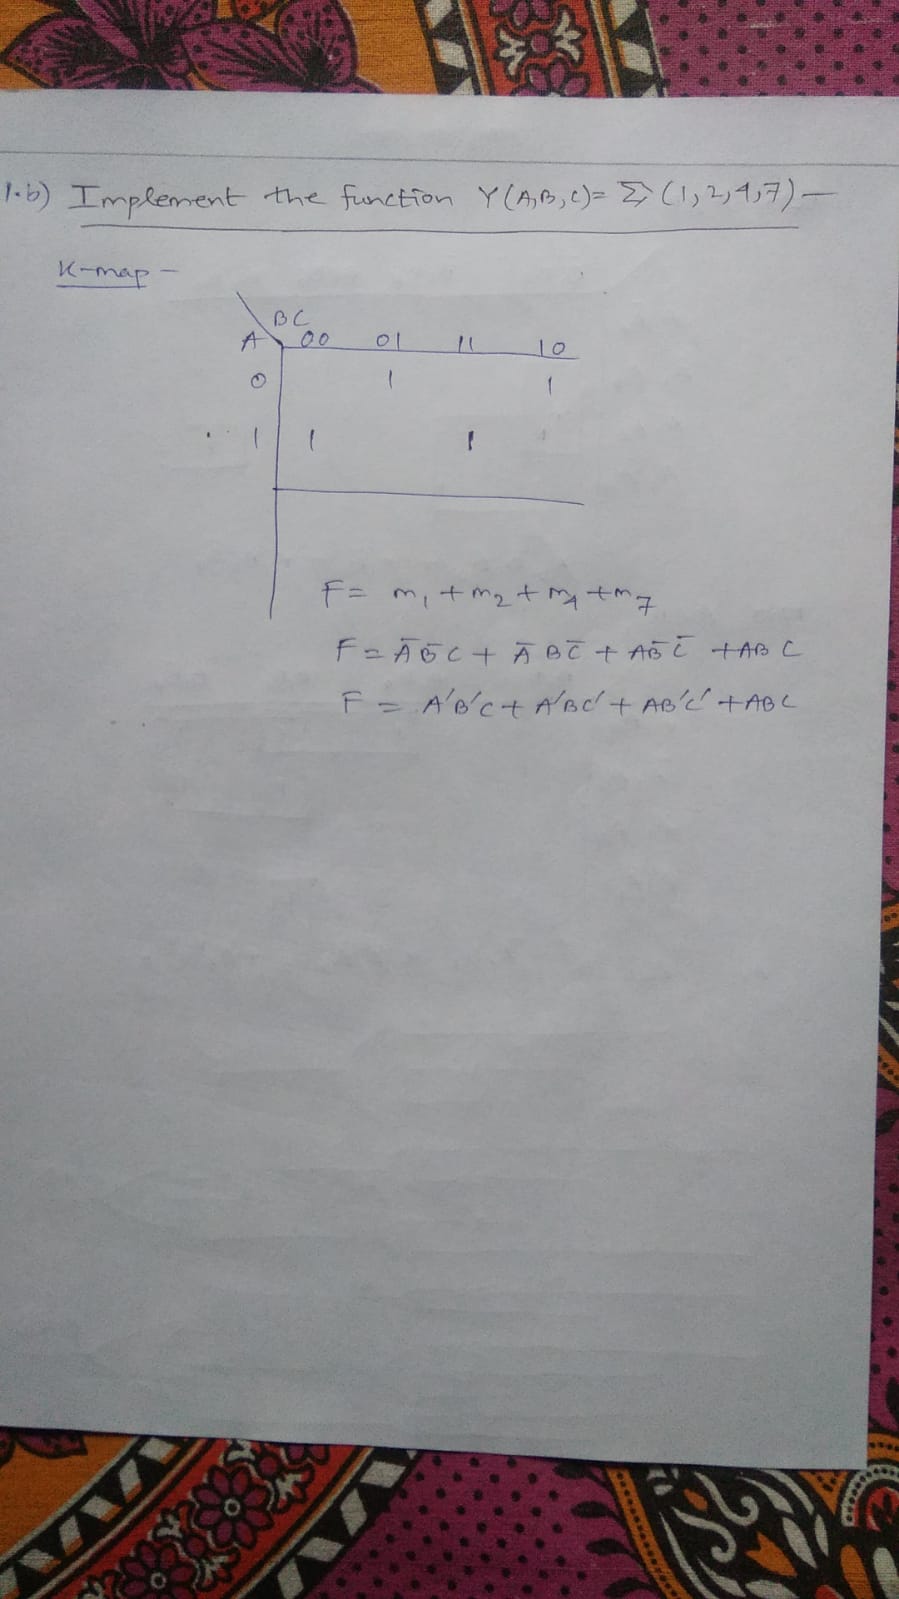 1.b) Implement the function Y(A,B,C)= Σ(1,2,4,7)—
K-map -
BC
A 00 01 11 10
0 1 1
1 1 1
F= m₁+m₂+m₄+m₇
F= A̅B̅C+ A̅BC̅ + AB̅C̅ +ABC
F = A'B'C+ A'BC'+ AB'C' +ABC